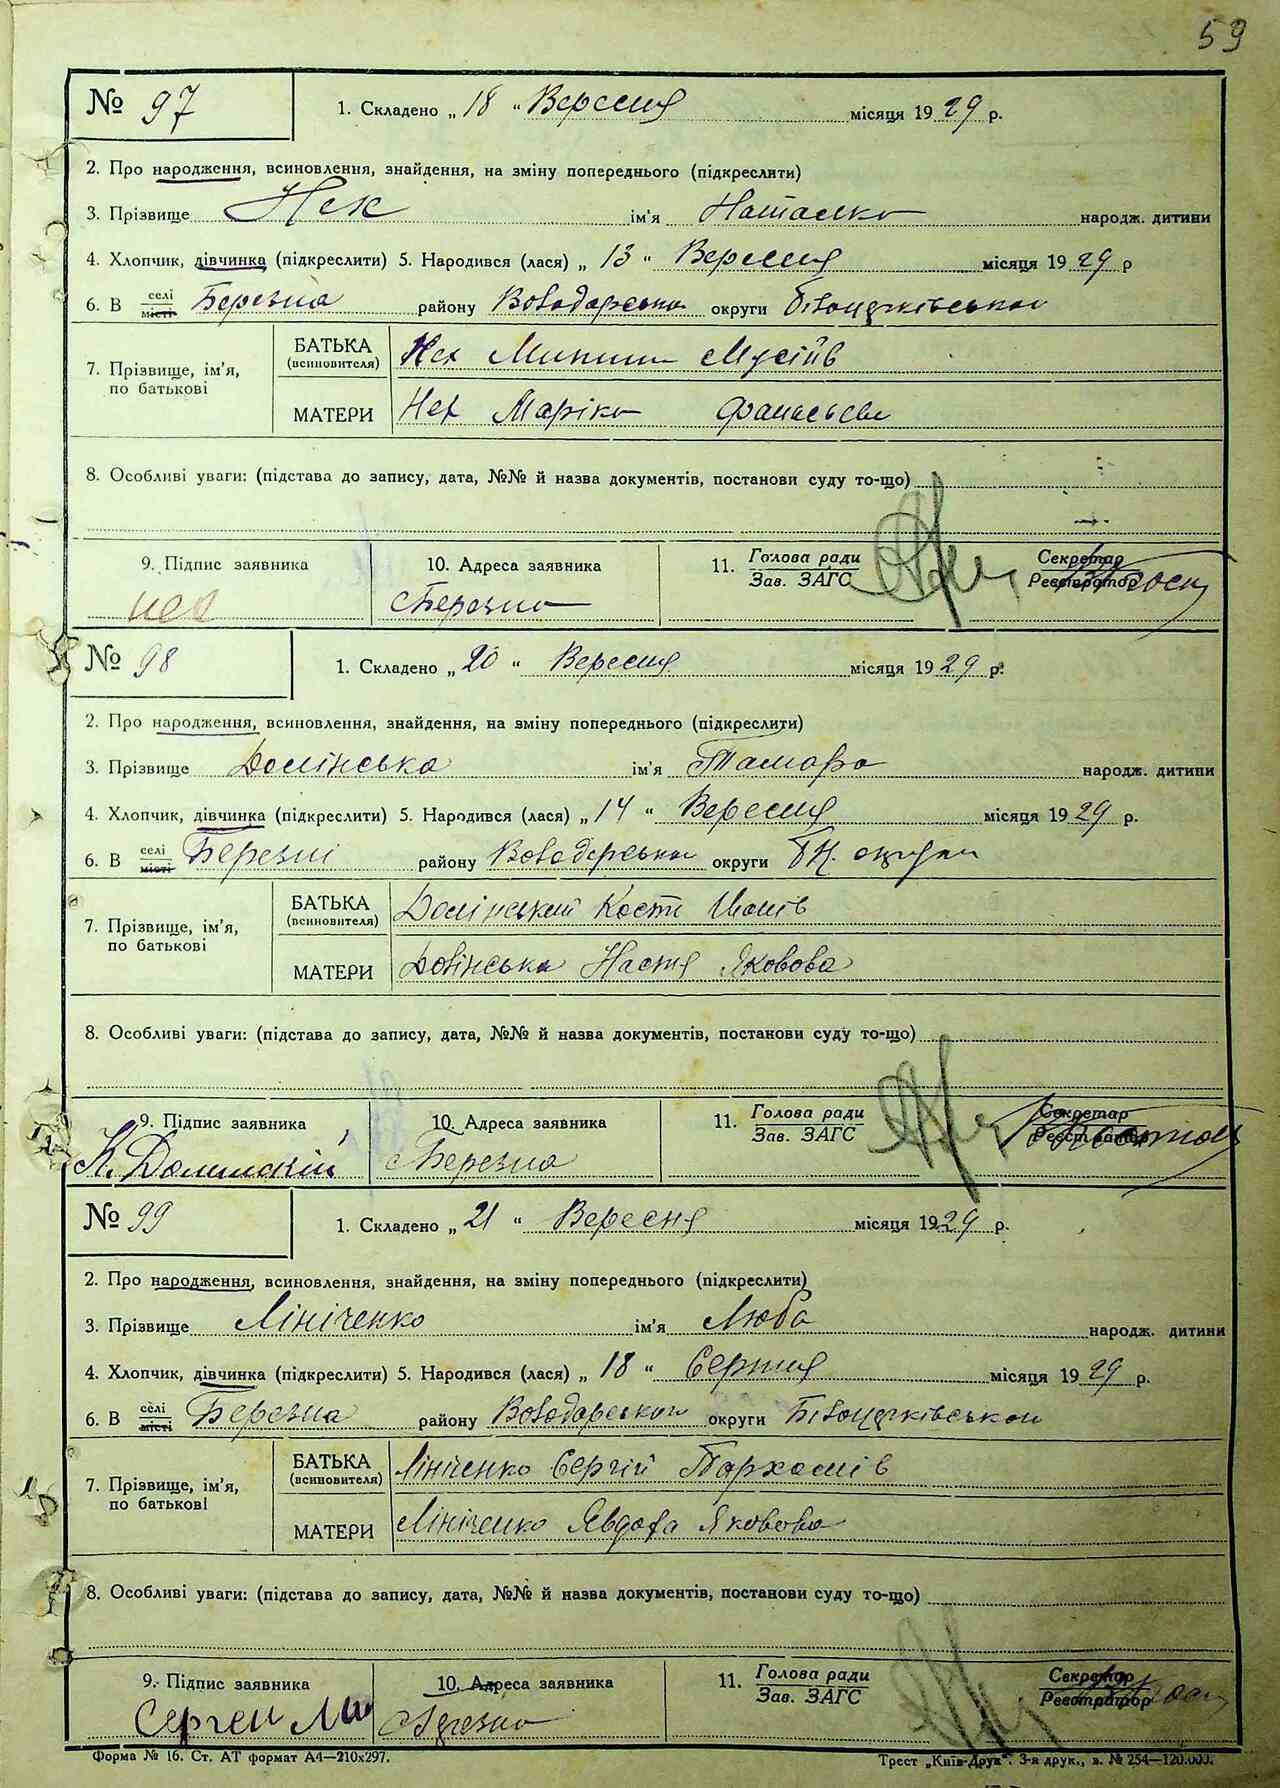 59
№ 97
1. Складено „ 18 “ Вересня місяця 19 29 р.
2. Про народження, всиновлення, знайдення, на зміну попереднього (підкреслити)
3. Прізвище Нех ім'я Наталка народж. дитини
4. Хлопчик, дівчинка (підкреслити) 5. Народився (лася) „ 13 “ Вересня місяця 19 29 р
6. В селі місті Березна району Володарсько округи Білоцерківської
7. Прізвище, ім'я, по батькові
БАТЬКА (всиновителя) Нех Мусіїв
МАТЕРИ Нех Маріка
8. Особливі уваги: (підстава до запису, дата, №№ й назва документів, постанови суду то-що)
9. Підпис заявника 10. Адреса заявника 11. Голова ради Зав. ЗАГС Секретар Реєстратор
Нех Березна
№ 98
1. Складено „ 20 “ Вересня місяця 19 29 р.
2. Про народження, всиновлення, знайдення, на зміну попереднього (підкреслити)
3. Прізвище Долінська ім'я Тамара народж. дитини
4. Хлопчик, дівчинка (підкреслити) 5. Народився (лася) „ 14 “ Вересня місяця 19 29 р.
6. В селі місті Березні району Володарської округи
7. Прізвище, ім'я, по батькові
БАТЬКА (всиновителя) Долінський Кость
МАТЕРИ Долінська Настя Яковова
8. Особливі уваги: (підстава до запису, дата, №№ й назва документів, постанови суду то-що)
9. Підпис заявника 10. Адреса заявника 11. Голова ради Зав. ЗАГС Секретар Реєстратор
К. Долинский Березна
№ 99
1. Складено „ 21 “ Вересня місяця 19 29 р.
2. Про народження, всиновлення, знайдення, на зміну попереднього (підкреслити)
3. Прізвище Лініченко ім'я Люба народж. дитини
4. Хлопчик, дівчинка (підкреслити) 5. Народився (лася) „ 18 “ Серпня місяця 19 29 р.
6. В селі місті Березна району Володарської округи Білоцерківської
7. Прізвище, ім'я, по батькові
БАТЬКА (всиновителя) Лініченко Сергій Пархомів
МАТЕРИ Лініченко Явдоха Яковова
8. Особливі уваги: (підстава до запису, дата, №№ й назва документів, постанови суду то-що)
9. Підпис заявника 10. Адреса заявника 11. Голова ради Зав. ЗАГС Секретар Реєстратор
Сергей Березна
Форма № 16. Ст. АТ формат А4—210x297. Трест „Київ-Друк“. 3-я друк., в. № 254—120.000.